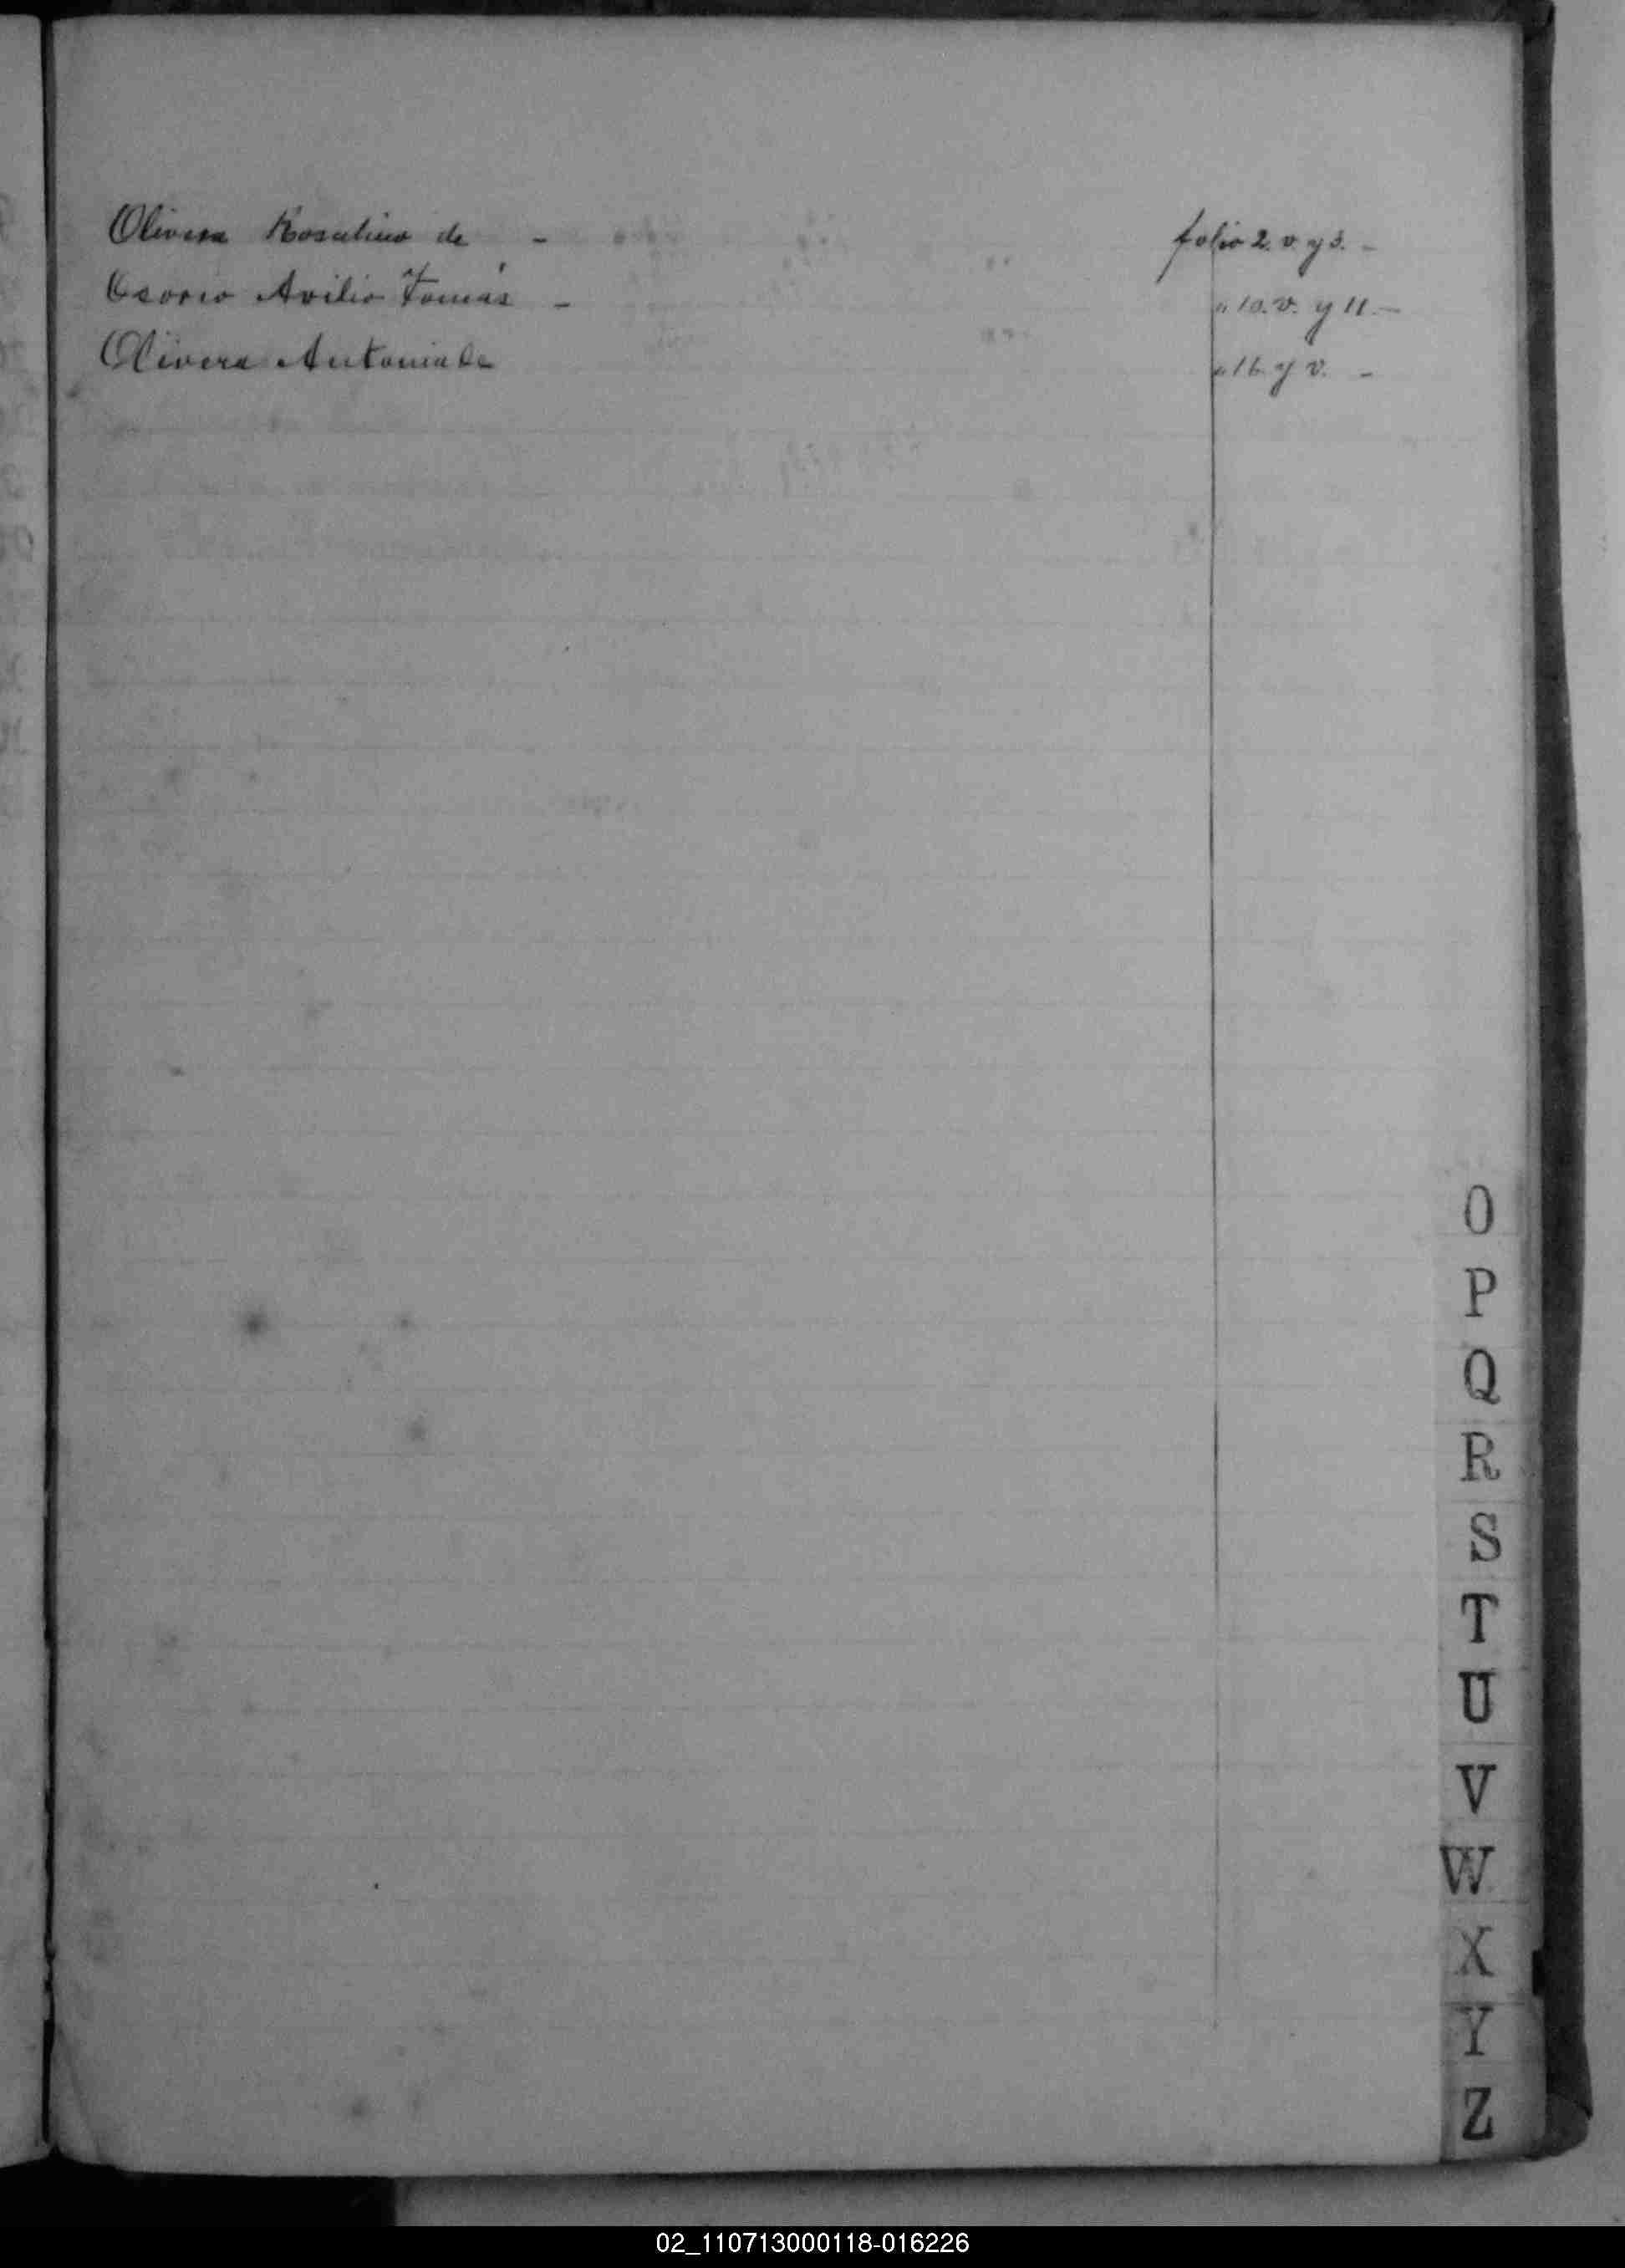 Olivera Rosalino de - folio 2. v. y 3. -
Osorio Avilio Tomás - " 10. v. y 11. -
Olivera Antonia de " 16 y v. -
O
P
Q
R
S
T
U
V
W
X
Y
Z
02_110713000118-016226